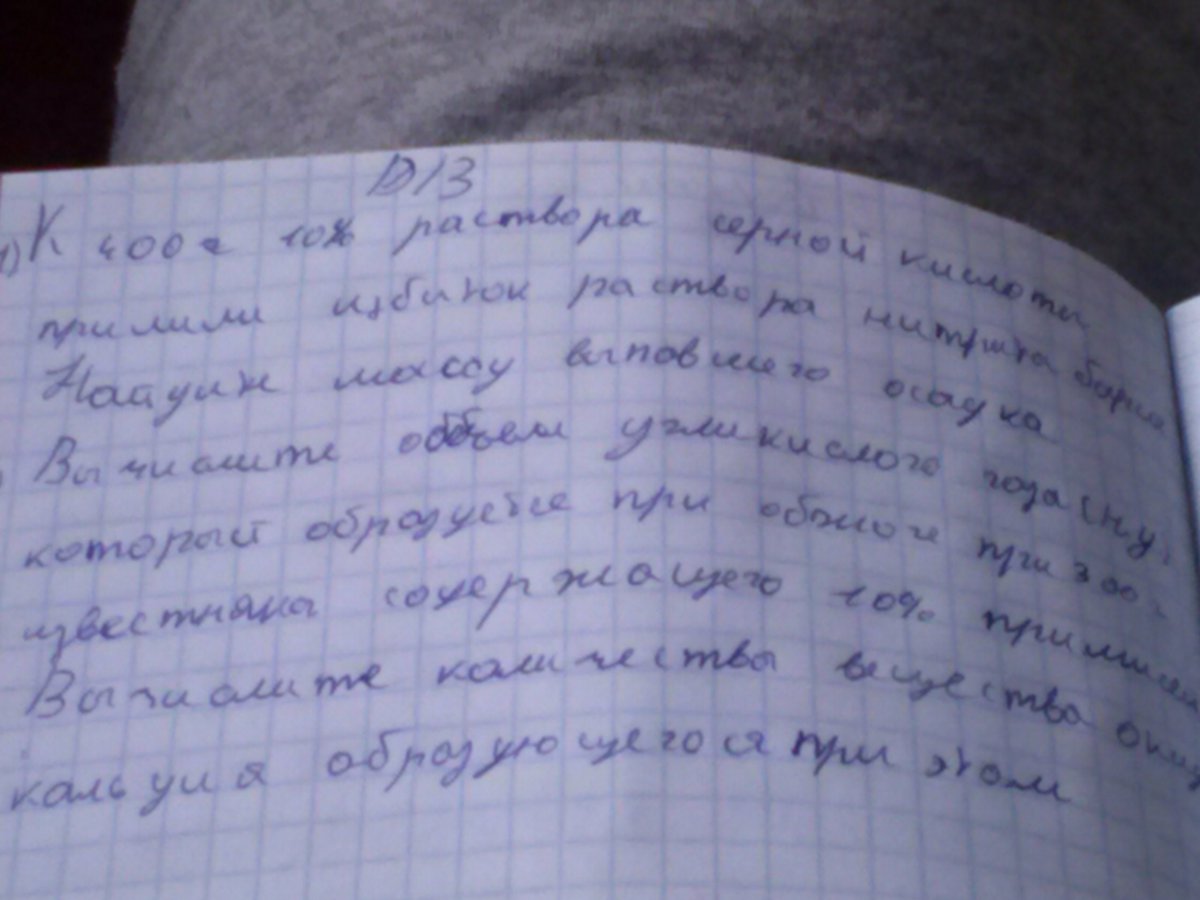 D/З
1) К 400 г 10% раствора серной кислоты
прилили избыток раствора нитрата бария
Найдите массу выповшего осадка
Вычислите объем угликислого газа (н.у.
который образуется при обжиге при 300 г
известняка содержащего 10% примисей
Вычислите количествы вещества
кальция образующегося при этом